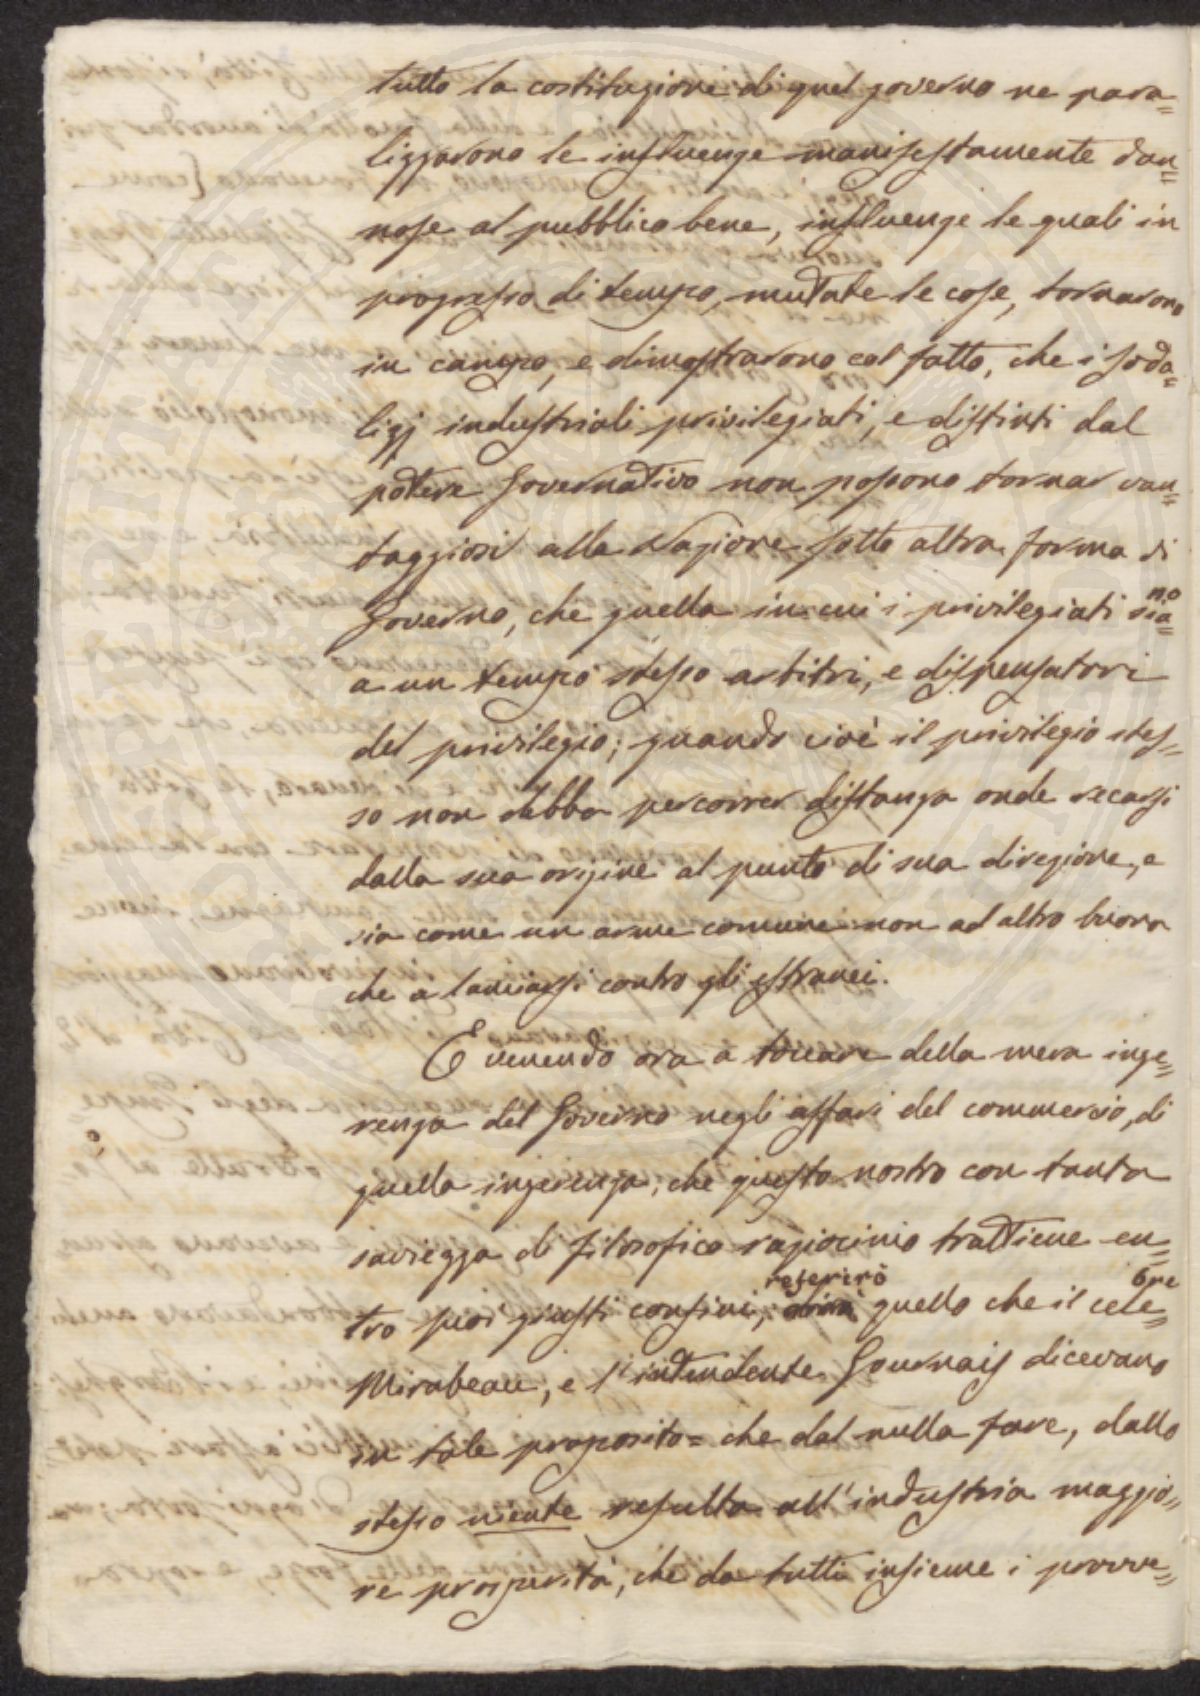 tutto la costituzione di quel governo ne para=
lizzarono le influenze manifestamente dan=
nose al pubblico bene, influenze le quali in
progresso di tempo, mutate le cose, tornarono
in campo, e dimostrarono col fatto, che i soda=
lizj industriali privilegiati, e distinti dal
potere Governativo non possono tornar van=
taggiosi alla Nazione sotto altra forma di
Governo, che quella in cui i privilegiati sia=
no
a un tempo stesso arbitri, e dispensatori
del privilegio; quando cioè il privilegio stes=
so non debba percorrer distanza onde recarsi
dalla sua origine al punto di sua direzione, e
sia come un arme comune non ad altro buona
che a lanciarsi contro gli estranei.
E venendo ora a toccare della mera inge=
renza del Governo negli affari del commercio, di
quella ingerenza, che questo nostro con tanta
saviezza di filosofico raziocinio trattiene en=
tro suoi giusti confini, referirò quello che il cele=
bre
Mirabeau, e l'intendente Gournais dicevano
in tale proposito= che dal nulla fare, dallo
stesso niente resulta all'industria maggio=
re prosperità, che da tutti insieme i provve=